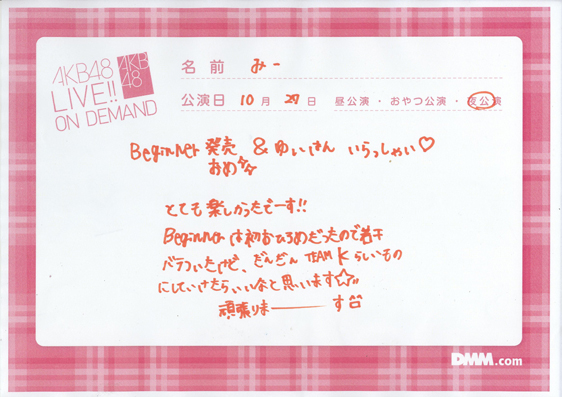 AKB48
LIVE!!
ON DEMAND
AKB
48
名前 みー
公演日 10月 27日 昼公演・おやつ公演・夜公演
Beginner 発売 & ゆいはん いらっしゃい♡
おめ☆☆
とても楽しかったでーす!!
Beginnerは初おひろめだったので若干
バラついたけど、だんだん TEAM Kらしいもの
にしていけたらいいなと思います☆!!
頑張りまーーーす
DMM.com